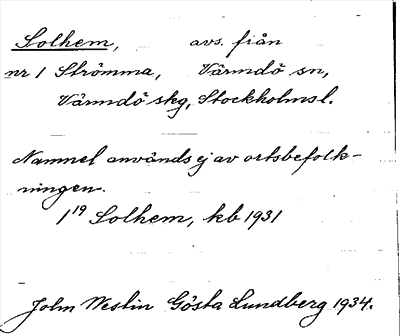 Solhem, avs. från
nr 1 Strömma, Värmdö sn,
Värmdö skg, Stockholmsl.
Namnet används ej av ortsbefolk-
ningen.
1¹⁹ Solhem, kb 1931
John Westin Gösta Lundberg 1934.